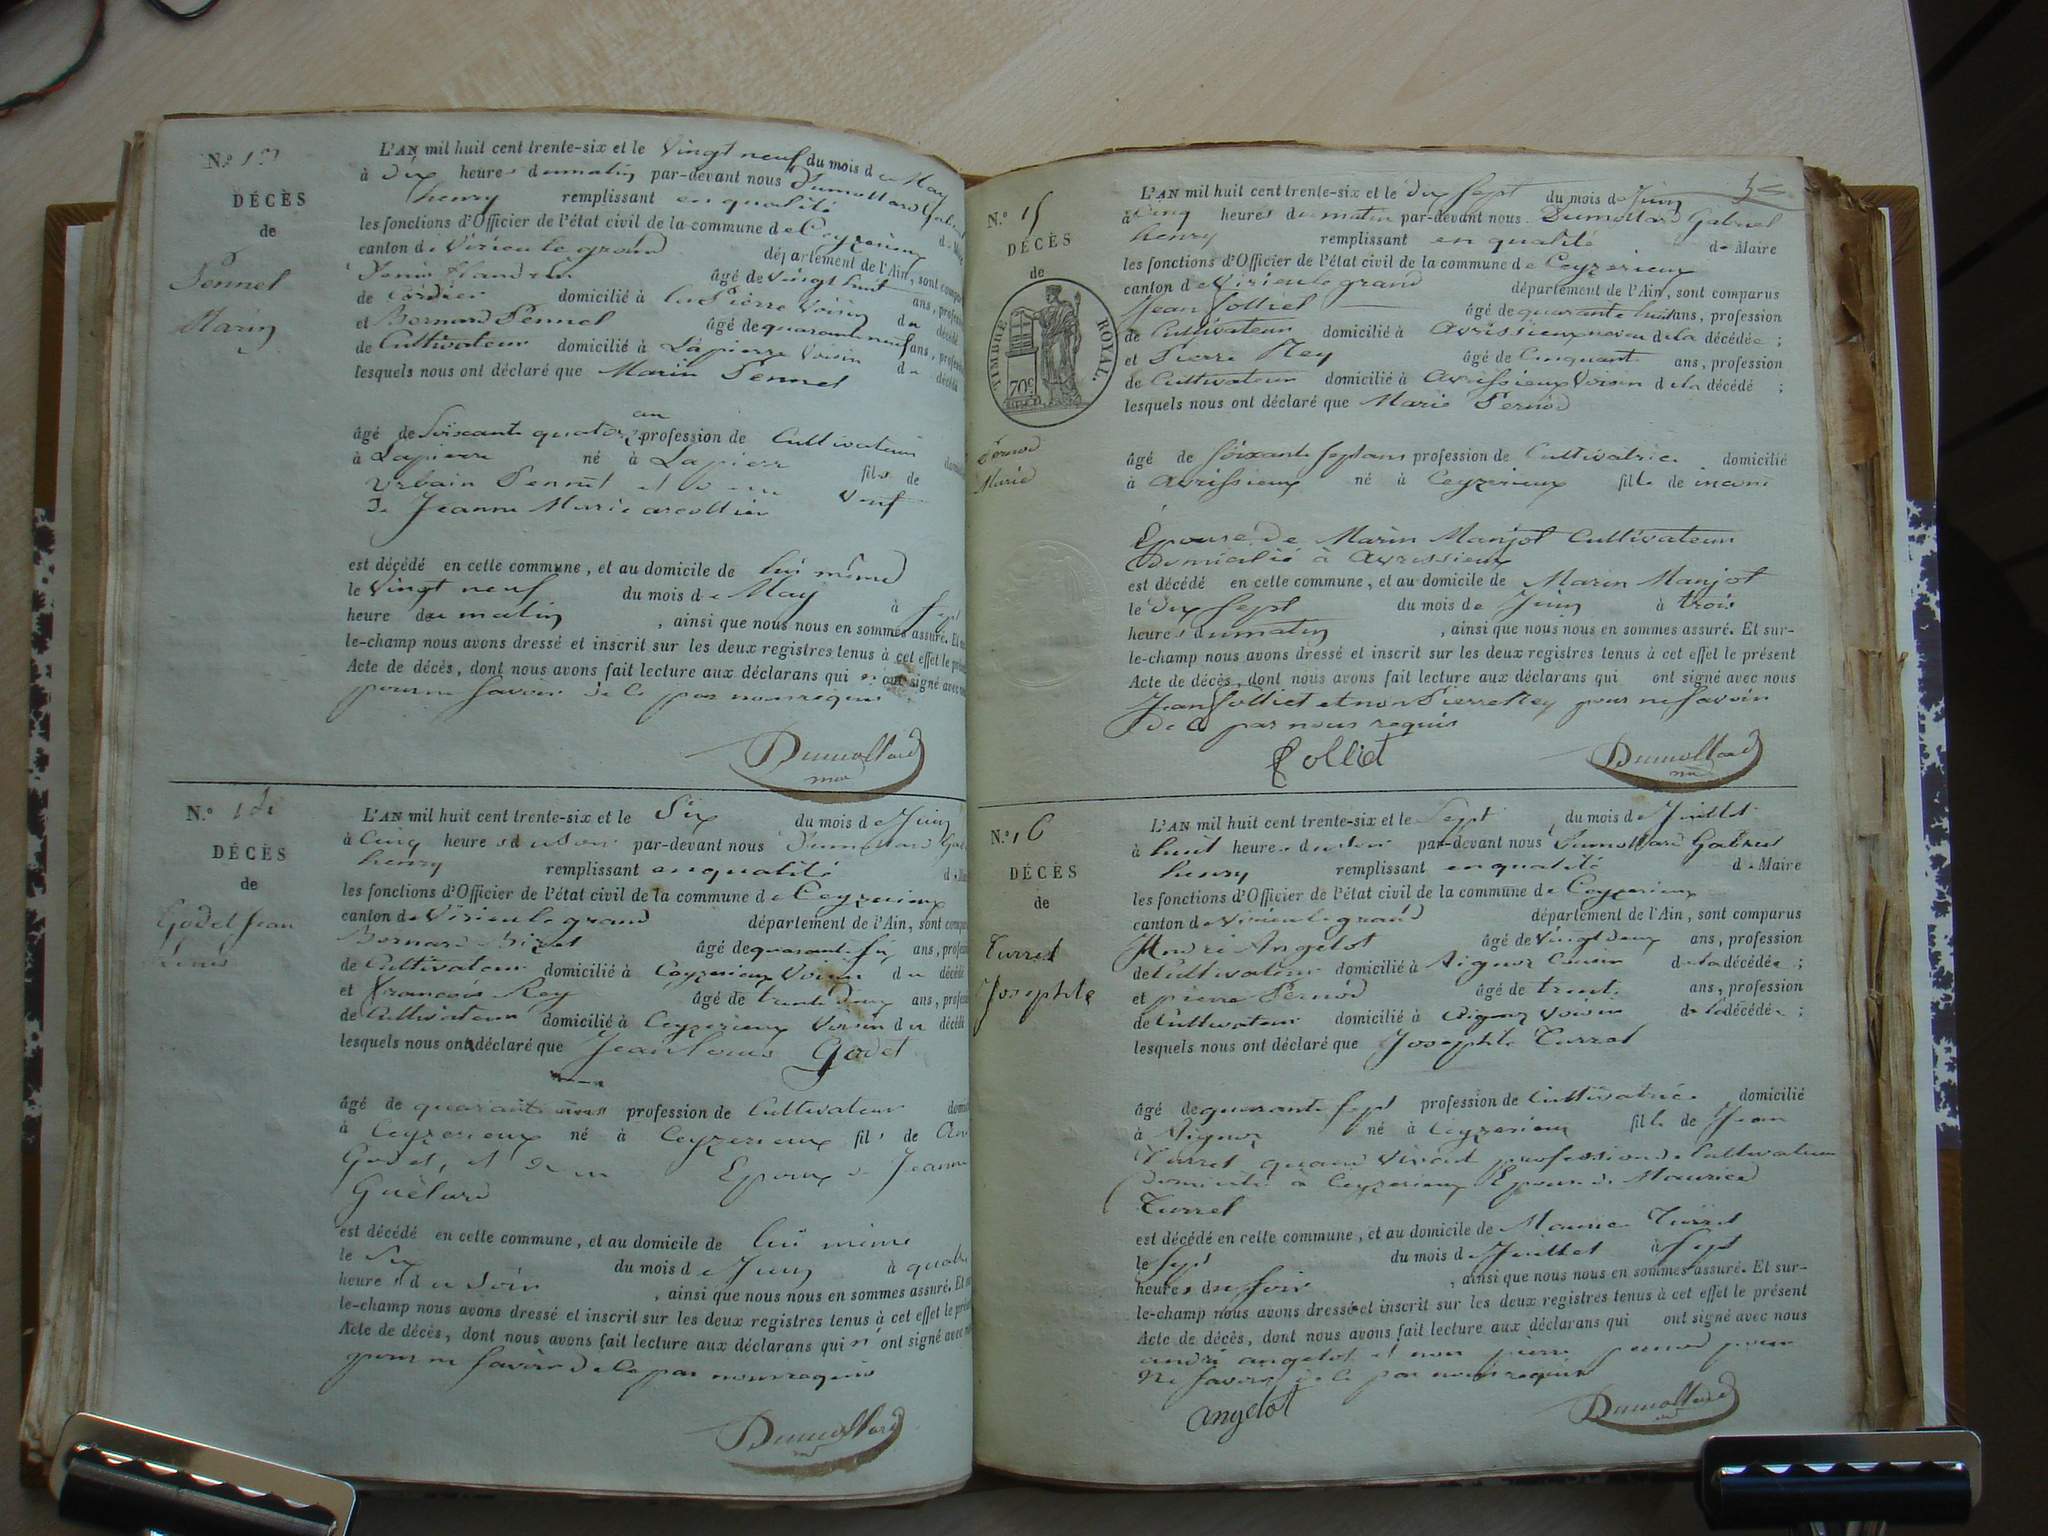 N.º 13
DÉCÈS
de
Pennel
Marin
L'AN mil huit cent trente-six et le Vingt neuf du mois de May
à dix heures du matin par-devant nous Dumollard Gabriel
henry remplissant en qualité de Maire
les fonctions d'Officier de l'état civil de la commune de Ceyzerieux
canton de Virieu le grand département de l'Ain, sont comparus
âgé de vingt huit ans, profession
de Cordier domicilié à la Pierre Voisin du décédé
et Bernard Pennel âgé de quarante neuf ans, profession
de Cultivateur domicilié à Lapierre Voisin du décédé
lesquels nous ont déclaré que Marin Pennel
an
âgé de Soixante quatorze profession de Cultivateur
à Lapierre né à Lapierre fils de
Urbain Pennel et de Veuf
De Jeanne Marie
est décédé en cette commune, et au domicile de lui même
le Vingt neuf du mois de May à sept
heure du matin , ainsi que nous nous en sommes assuré. Et
le-champ nous avons dressé et inscrit sur les deux registres tenus à cet effet le
Acte de décès, dont nous avons fait lecture aux déclarans qui n'ont signé avec
pour ne savoir de ce par nous requis
Dumollard
N.º 14
DÉCÈS
de
Godet Jean
Louis
L'AN mil huit cent trente-six et le Six du mois de Juin
à Cinq heures du soir par-devant nous Dumollard
henry remplissant en qualité
les fonctions d'Officier de l'état civil de la commune de Ceyzerieux
canton de Virieu le grand département de l'Ain, sont
Bernard âgé de quarante six ans,
de Cultivateur domicilié à Ceyzerieux Voisin du décédé
et François Rey âgé de trente deux ans,
de Cultivateur domicilié à Ceyzerieux Voisin du décédé
lesquels nous ont déclaré que Jean Louis Godet
âgé de quarante profession de Cultivateur
à Ceyzerieux né à Ceyzerieux fils de
Godet, et de Epoux de Jeanne
est décédé en cette commune, et au domicile de lui même
le Six du mois de Juin à quatre
heures du soir , ainsi que nous nous en sommes assuré. Et
le-champ nous avons dressé et inscrit sur les deux registres tenus à cet effet le
Acte de décès, dont nous avons fait lecture aux déclarans qui n'ont signé avec
pour ne savoir de ce par nous requis
Dumollard
N.º 15
DÉCÈS
de
TIMBRE ROYAL.
70c
Pernod
Marie
L'AN mil huit cent trente-six et le dix Sept du mois de Juin
à Cinq heures du matin par-devant nous Dumollard Gabriel
henry remplissant en qualité de Maire
les fonctions d'Officier de l'état civil de la commune de Ceyzerieux
canton de Virieu le grand département de l'Ain, sont comparus
Jean Jolliet âgé de quarante huit ans, profession
de Cultivateur domicilié à Avrissieux neveu de la décédée ;
et Pierre Rey âgé de Cinquante ans, profession
de Cultivateur domicilié à Avrissieux Voisin de la décédé ;
lesquels nous ont déclaré que Marie Pernod
âgé de soixante sept ans profession de Cultivatrice domicilié
à Avrissieux né à Ceyzerieux fille de
Epouse de Marin Manjot Cultivateur
Domicilié à Avrissieux
est décédé en cette commune, et au domicile de Marin Manjot
le dix sept du mois de Juin à trois
heures du matin , ainsi que nous nous en sommes assuré. Et sur-
le-champ nous avons dressé et inscrit sur les deux registres tenus à cet effet le présent
Acte de décès, dont nous avons fait lecture aux déclarans qui ont signé avec nous
Jean Jolliet et non Pierre Rey pour ne savoir
de ce par nous requis
Jolliet Dumollard
N.º 16
DÉCÈS
de
Turrel
Josephte
L'AN mil huit cent trente-six et le Sept du mois de Juillet
à huit heures du soir par-devant nous Dumollard Gabriel
henry remplissant en qualité de Maire
les fonctions d'Officier de l'état civil de la commune de Ceyzerieux
canton de Virieu le grand département de l'Ain, sont comparus
Andre Angelot âgé de Vingt deux ans, profession
de Cultivateur domicilié à Aignoz Cousin de la décédée ;
et pierre Pernod âgé de trente ans, profession
de Cultivateur domicilié à Aignoz Voisin de la décédée ;
lesquels nous ont déclaré que Josephte Turrel
âgé de quarante sept profession de Cultivatrice domicilié
à Aignoz né à Ceyzerieux fille de Jean
Turrel quand Vivait profession de Cultivateur
Domicilié à Ceyzerieux Epouse de Maurice
Turrel
est décédé en cette commune, et au domicile de Maurice Turrel
le sept du mois de Juillet à sept
heures du soir , ainsi que nous nous en sommes assuré. Et sur-
le-champ nous avons dressé et inscrit sur les deux registres tenus à cet effet le présent
Acte de décès, dont nous avons fait lecture aux déclarans qui ont signé avec nous
andré angelot et non pierre pernod pour
Ne savoir de ce par nous requis
angelot Dumollard